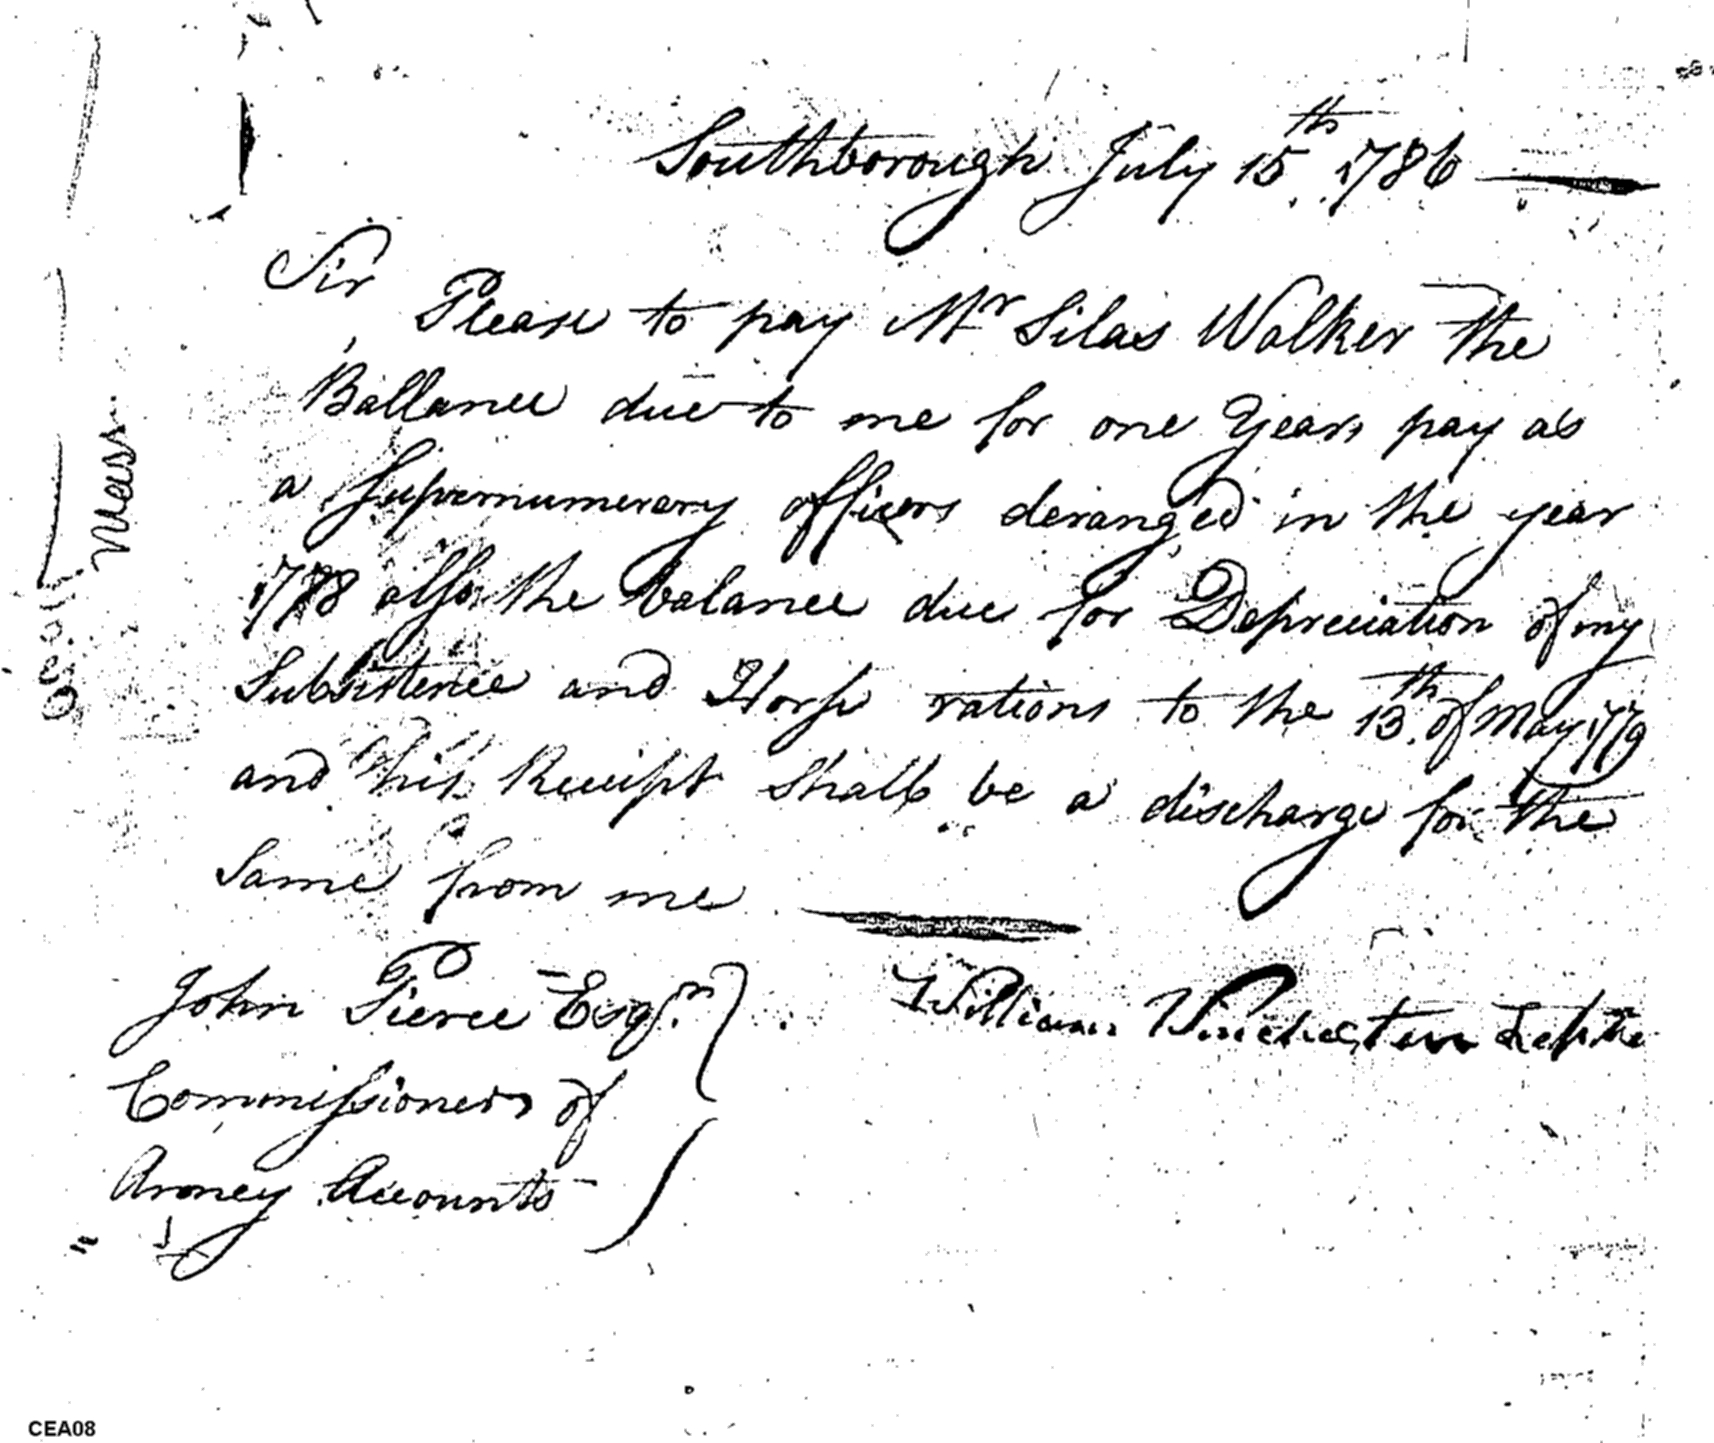 Southborough July 15th 1786
Sir
Please to pay Mr Silas Walker the
Ballance due to me for one Years pay as
a Supernumerary officers deranged in the year
1778 also the balance due for Depreciation of my
Subsistence and Horse rations to the 13th of May 1779
and this Receipt shall be a discharge for the
Same from me
John Pierce Esqr
William Winchester
Commissioners of
Armey Accounts
Mass
CEA08